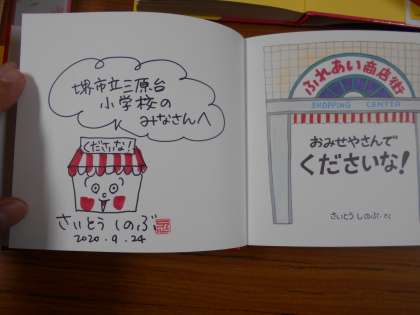 堺市立三原台
小学校の
みなさんへ
くださいな!
さいとうしのぶ
2020.9.24
ふれあい商店街
SHOPPING CENTER
おみせやさんで
くださいな!
さいとうしのぶ・さく